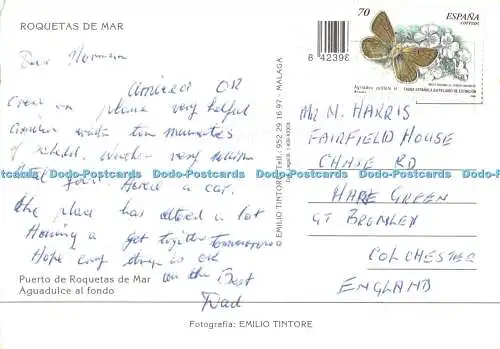 ROQUETAS DE MAR
Dear Norman
Arrived OK
Crew on plane very helpful
Arrived within ten minutes
of schedul. Weather very warm
Hotel four. Hired a car.
the place has altered a lot
Having a get together tomorrow
Hope every thing is OK
all the Best
Dad
Puerto de Roquetas de Mar
Aguadulce al fondo
Fotografía: EMILIO TINTORE
EMILIO TINTORE - Telf.: 952 29 16 97 - MALAGA
8 42398
70
ESPAÑA
CORREOS
FAUNA ESPAÑOLA EN PELIGRO DE EXTINCION
Mr N. HARRIS
FAIRFIELD HOUSE
CHASE RD
HARE GREEN
GT BROMLEY
COLCHESTER
ENGLAND
Dodo-Postcards Dodo-Postcards Dodo-Postcards Dodo-Postcards Dodo-Postcards